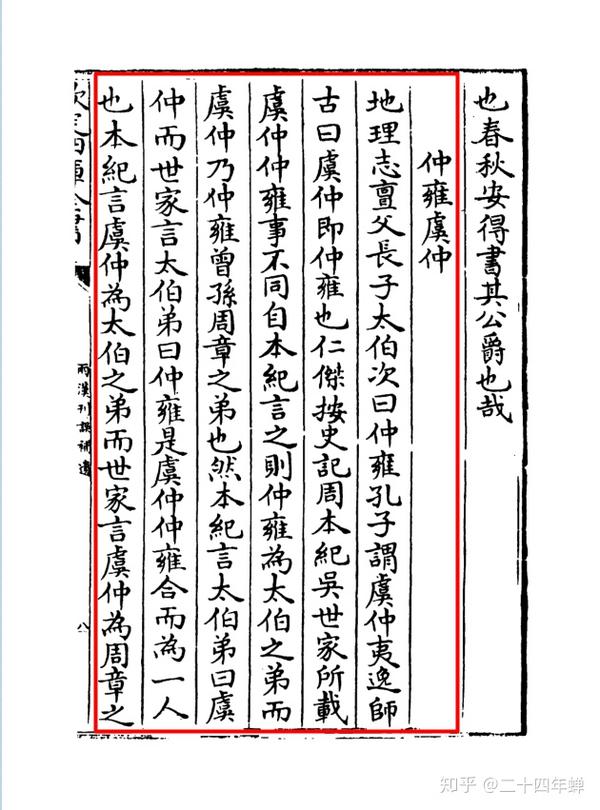 也春秋安得書其公爵也哉
仲雍虞仲
地理志亶父長子太伯次曰仲雍孔子謂虞仲夷逸師
古曰虞仲即仲雍也仁傑按史記周本紀吳世家所載
虞仲仲雍事不同自本紀言之則仲雍為太伯之弟而
虞仲乃仲雍曾孫周章之弟也然本紀言太伯弟曰虞
仲而世家言太伯弟曰仲雍是虞仲仲雍合而為一人
也本紀言虞仲為太伯之弟而世家言虞仲為周章之
欽定四庫全書
兩漢刊誤補遺
八
知乎 @二十四年蝉